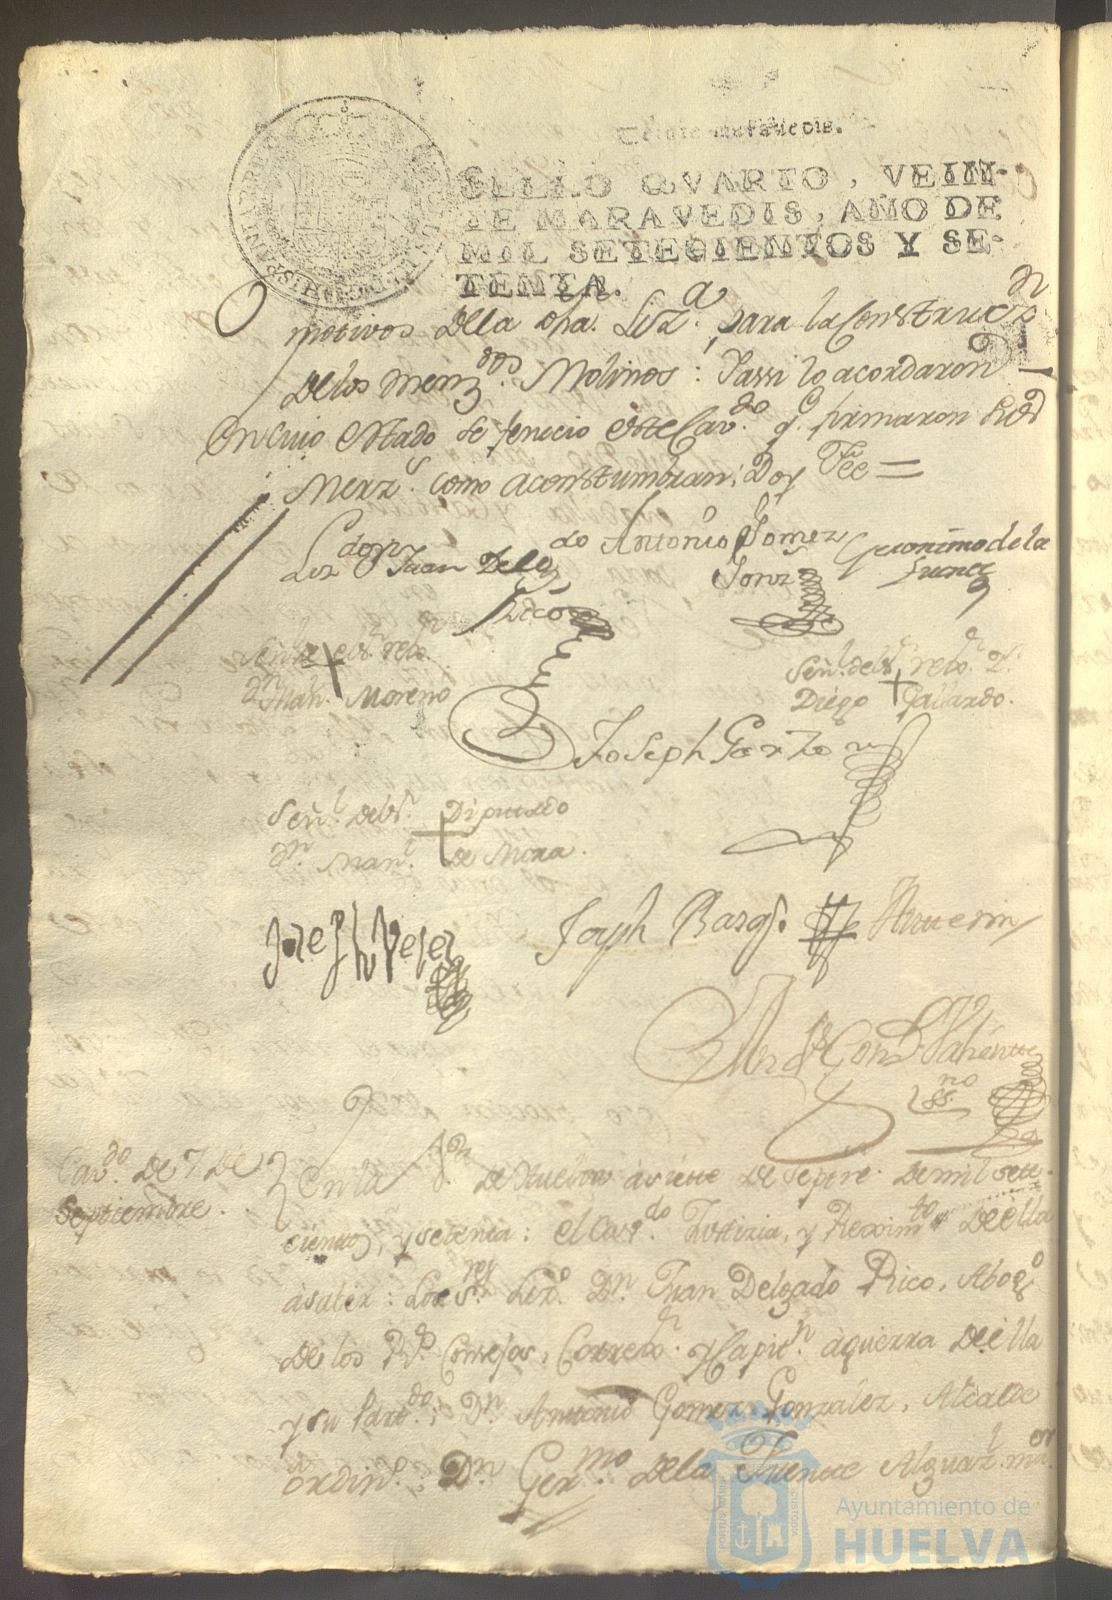 Veinte maravedis.
SELLO QVARTO, VEIN-
TE MARAVEDIS, AÑO DE
MIL SETECIENTOS Y SE-
TENTA.
motivos de la dha. Liz.ª para la Construcz.n
de los menz.dos Molinos: Yassi lo acordaron
En cuio estado se fenecio este Cav.do q.e firmaron
Merz.s como acostumbran; Doy Fee =
Liz.do Dn Juan Delg.do
Rico
Antonio Gomez
Gonz.z
Geronimo de la
Fuente
Señal del Sr. rex.or
Dn Man.l Moreno
Señ.l del Sr. rex.or Dn
Diego Gallardo.
Joseph Garzon
Señ.l del Sr. Diputado
Dn Man.l de Mora.
Joseph Barg.s
Valiente
ss.no
Cav.do de 7 de
Septiembre.
En la V.a de Huelva a siete de Sep.re de mil sete-
cientos, y setenta: el Cav.do Justizia, y Rexim.to de ella
a saber: Los S.res Liz.do Dn Juan Delgado Rico, Abog.o
de los R.s Consejos, Correx.or y Capit.n a guerra de ella
y su Part.do; Dn Antonio Gomez Gonzalez, Alcalde
ordin.o; Dn Ger.mo de la Fuente Alguaz.l m.or
Ayuntamiento de
HUELVA